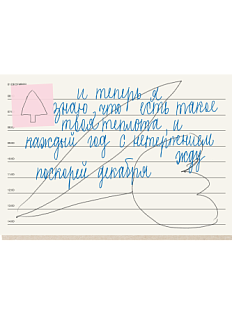 и теперь я
знаю, что есть такое
твоя теплота, и
каждый год с нетерпением
жду
поскорей декабря